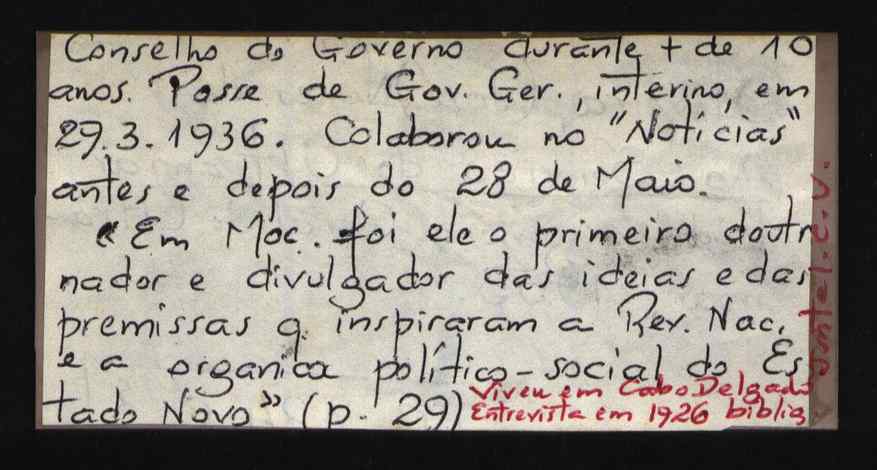 Conselho do Governo durante + de 10
anos. Posse de Gov. Ger., interino, em
29.3.1936. Colaborou no "Notícias"
antes e depois do 28 de Maio.
"Em Moc. foi ele o primeiro doutr
nador e divulgador das ideias e das
premissas q. inspiraram a Rev. Nac.
e a organica político-social do Es
tado Novo" (p. 29)
Viveu em Cabo Delgado
Entrevista em 1926 bibliog